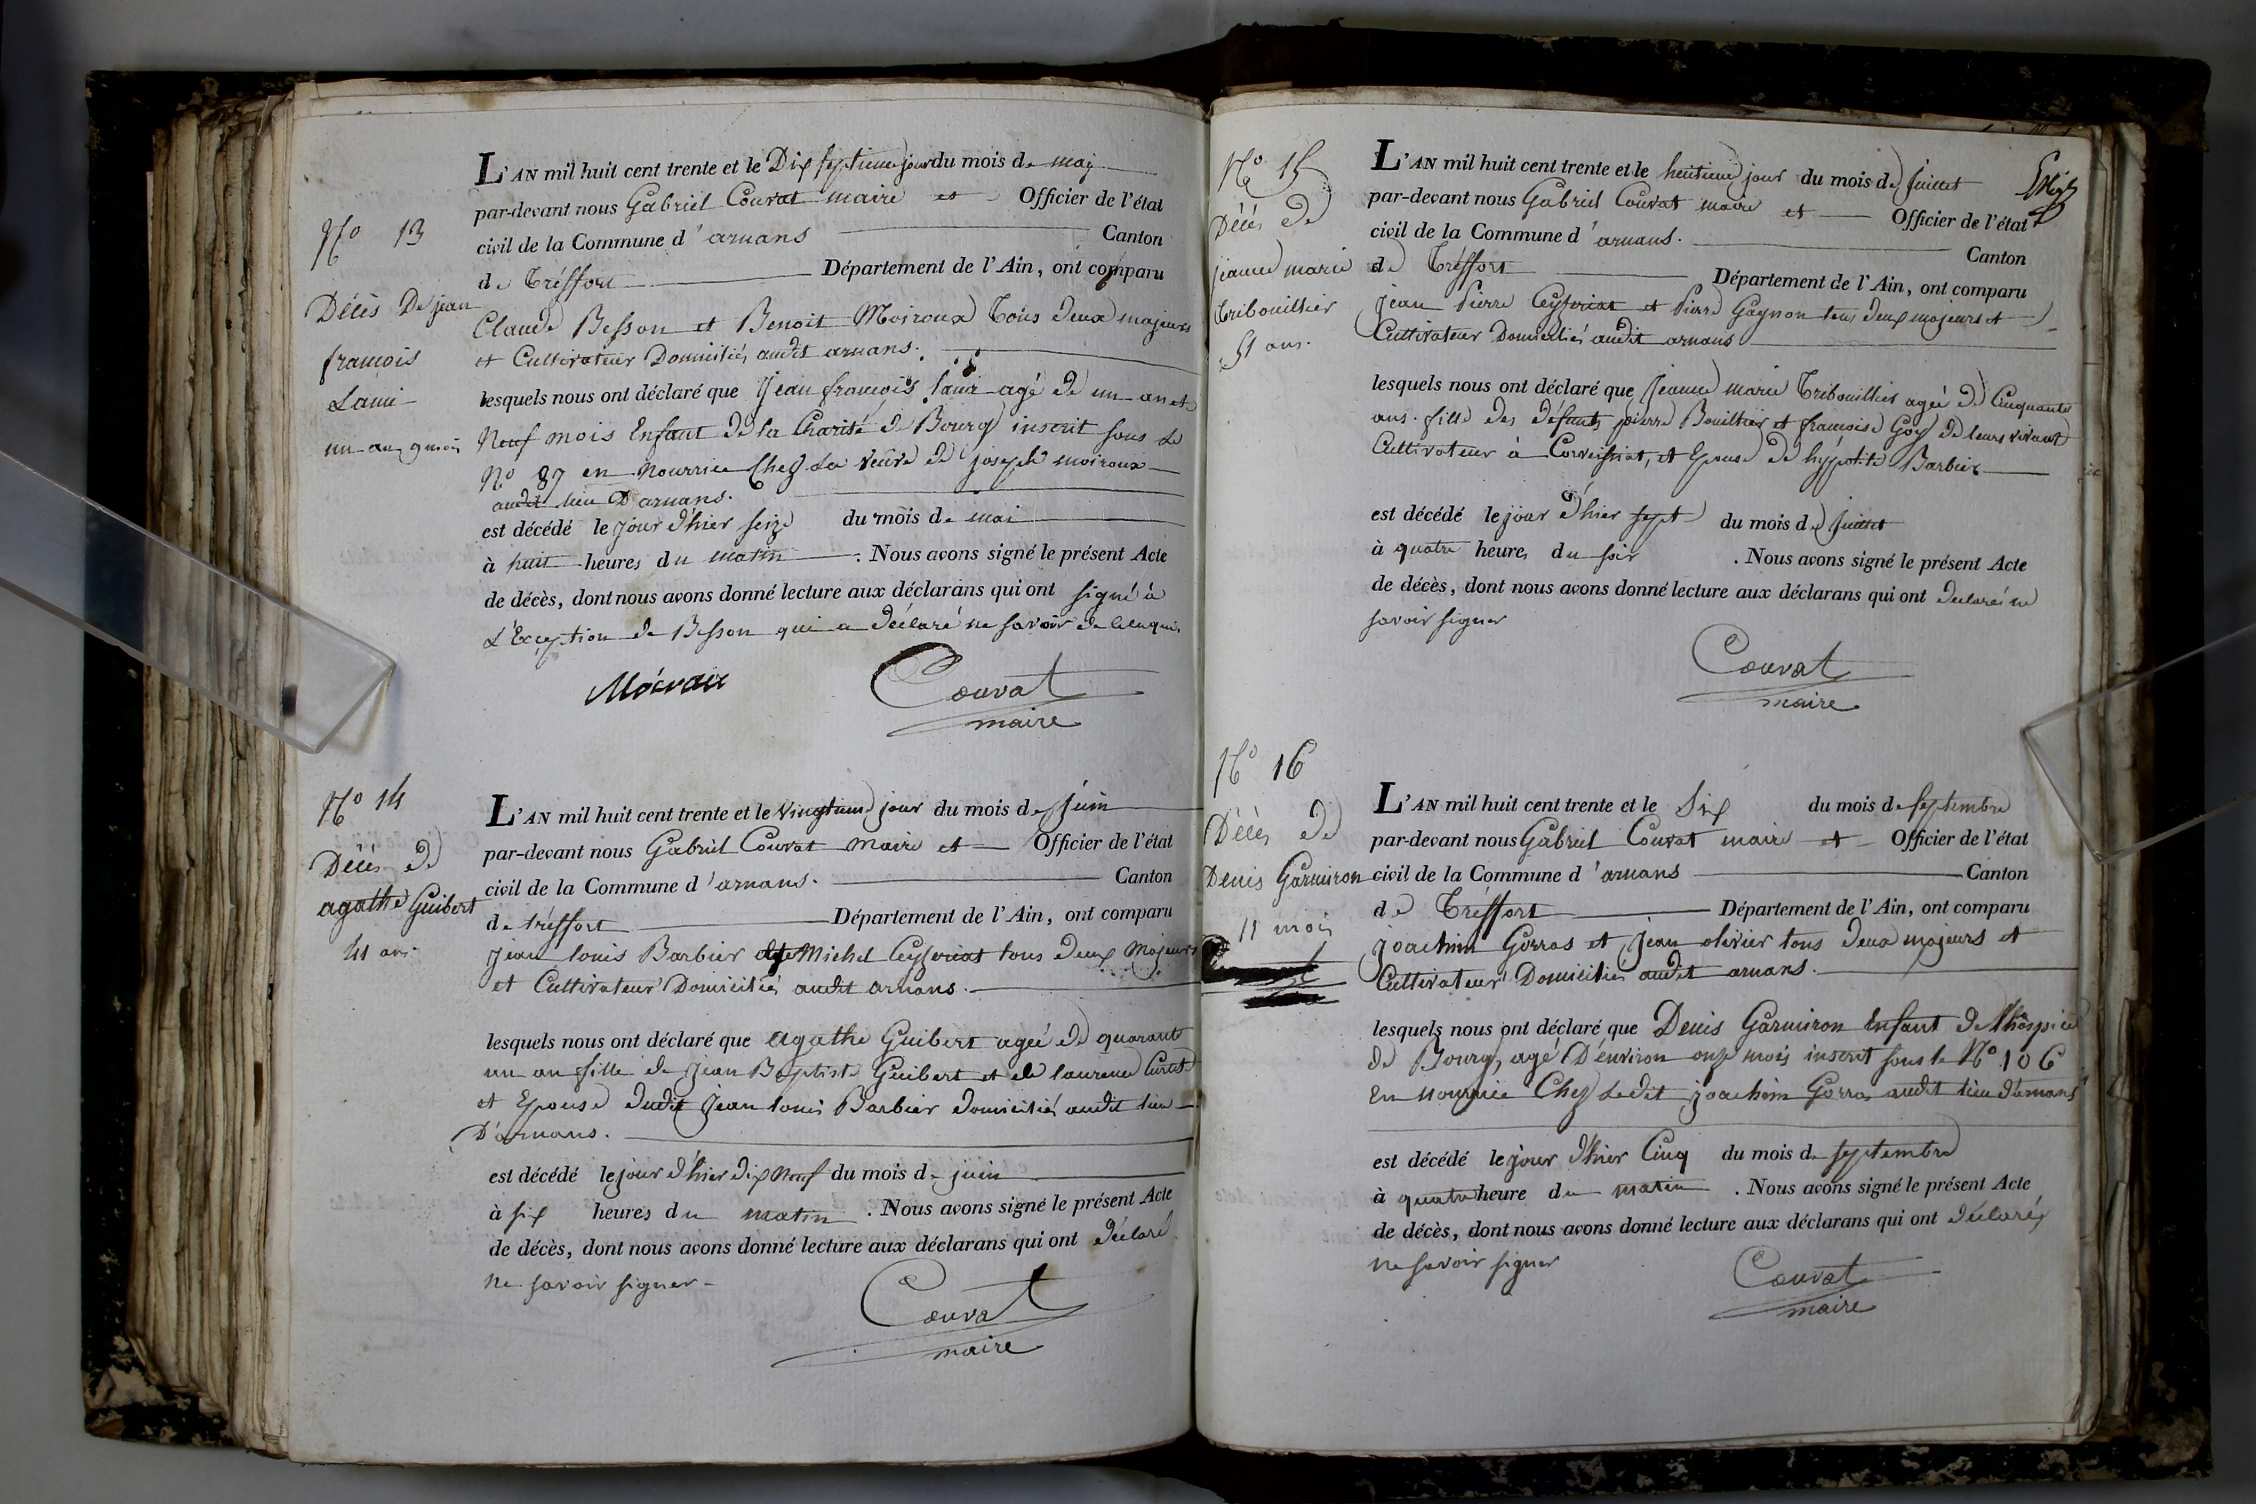 N.o 13
Décès De jean
francois
Lami
un an 9 mois
L'AN mil huit cent trente et le Dix septieme jour du mois de mai
par-devant nous Gabriel Couvat maire et Officier de l'état
civil de la Commune d'arnans Canton
de Tréffort Département de l'Ain, ont comparu
Claude Besson et Benoit Moiroux Tous deux majeurs
et Cultivateur Domiciliés audit arnans.
lesquels nous ont déclaré que Jean francois Lami agé de un an et
Neuf mois Enfant de la Charité de Bourg inscrit sous le
N.o 87 en Nourrice Chez La veuve de joseph moiroux
audit lieu D'arnans.
est décédé le jour d'hier seize du mois de mai
à huit heures du matin. Nous avons signé le présent Acte
de décès, dont nous avons donné lecture aux déclarans qui ont signé à
L'Exception de Besson qui a déclaré ne savoir de ce enquis
Moiroux
Couvat
maire
N.o 14
Décès de
agathe Guibert
41 ans
L'AN mil huit cent trente et le vingtieme jour du mois de juin
par-devant nous Gabriel Couvat Maire et Officier de l'état
civil de la Commune d'arnans. Canton
de tréffort Département de l'Ain, ont comparu
Jean Louis Barbier et Michel Ceyseriat tous deux Majeurs
et Cultivateur Domiciliés audit arnans.
lesquels nous ont déclaré que agathe Guibert agée de quarante
un an fille de Jean Baptiste Guibert et de laurence Curtet
et Epouse dudit Jean Louis Barbier domiciliés audit lieu
D'arnans.
est décédé le jour d'hier dix Neuf du mois de juin
à six heures du matin. Nous avons signé le présent Acte
de décès, dont nous avons donné lecture aux déclarans qui ont déclaré
ne savoir signer
Couvat
maire
N.o 15
Décès de
jeanne marie
Tribouillier
51 ans.
L'AN mil huit cent trente et le huitieme jour du mois de Juillet
par-devant nous Gabriel Couvat maire et Officier de l'état
civil de la Commune d'arnans. Canton
de Tréffort Département de l'Ain, ont comparu
Jean Pierre Ceyseriat et Pierre Gagnon tous deux majeurs et
Cultivateur Domiciliés audit arnans
lesquels nous ont déclaré que Jeanne marie Tribouillier agée de Cinquante
ans. fille des défunts pierre Bouillier et francoise Goy de leurs vivant
Cultivateur à Corveissiat, et Epouse de hypolité Barbier
est décédé le jour d'hier sept du mois de Juillet
à quatre heures du soir. Nous avons signé le présent Acte
de décès, dont nous avons donné lecture aux déclarans qui ont déclarés ne
savoir signer
Couvat
maire
N.o 16
Décès de
Denis Garmiron
11 mois
L'AN mil huit cent trente et le Six du mois de septembre
par-devant nous Gabriel Couvat maire et Officier de l'état
civil de la Commune d'arnans Canton
de Tréffort Département de l'Ain, ont comparu
joachim Gorras et Jean olivier tous deux majeurs et
Cultivateur Domiciliés audit arnans.
lesquels nous ont déclaré que Denis Garmiron Enfant de l'hospice
de Bourg, agé D'environ onze mois inscrit sous le N.o 106
En Nourrice Chez Ledit joachim Gorras audit lieu d'arnans
est décédé le jour d'hier Cinq du mois de septembre
à quatre heure du matin. Nous avons signé le présent Acte
de décès, dont nous avons donné lecture aux déclarans qui ont déclarés
ne savoir signer
Couvat
maire